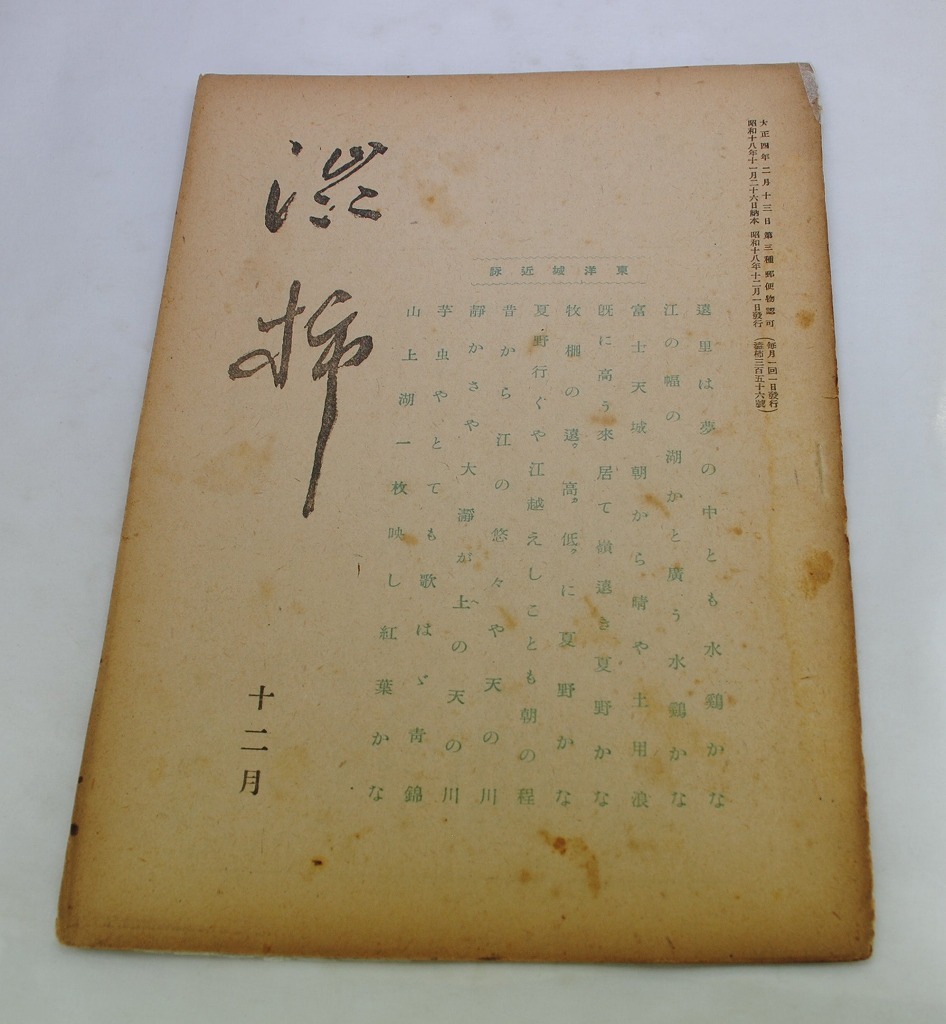 大正四年二月十三日第三種郵便物認可 (毎月一回一日發行)
昭和十八年十一月二十六日納本 昭和十八年十二月一日發行 (澁柿三百五十六號)
東洋城近詠
遠里は夢の中とも水鷄かな
江の幅の湖かと廣う水鷄かな
富士天城朝から晴や土用浪
既に高う來居て嶺遠き夏野かな
牧柵の遠高低に夏野かな
夏野行ぐや江越えしことも朝の程
昔から江の悠々や天の川
靜かさや大瀞が上への天の川
芋虫やとても歌はゞ靑錦
山上湖一枚映し紅葉かな
澁柿
十二月